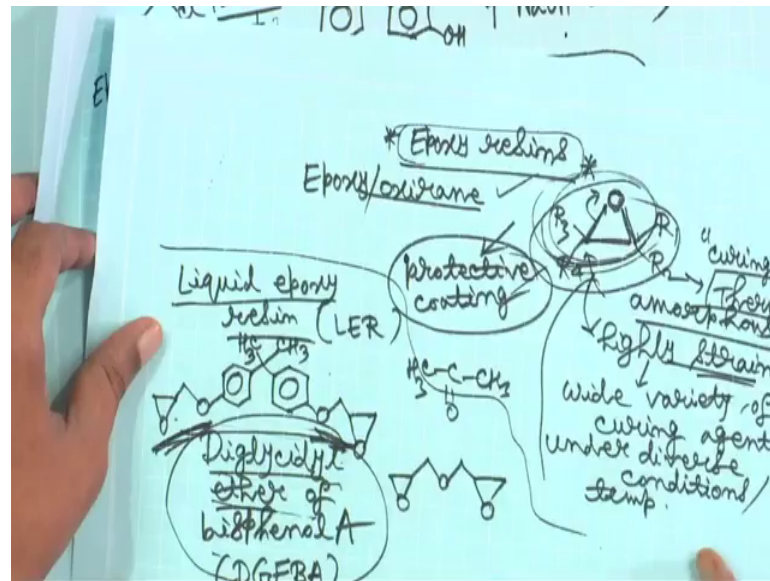 OH
* Epoxy resins *
Epoxy/oxirane
O
R3
R
R4
R
protective
coating
"curing
Ther
amorphous
highly strain
wide variety of
curing agent
under diverse
conditions/
temp.
Liquid epoxy
resin (LER)
H3C CH3
O O
O O
H3C-C-CH3
O
O O O
Diglycidyl
ether of
bisphenol A
(DGEBA)